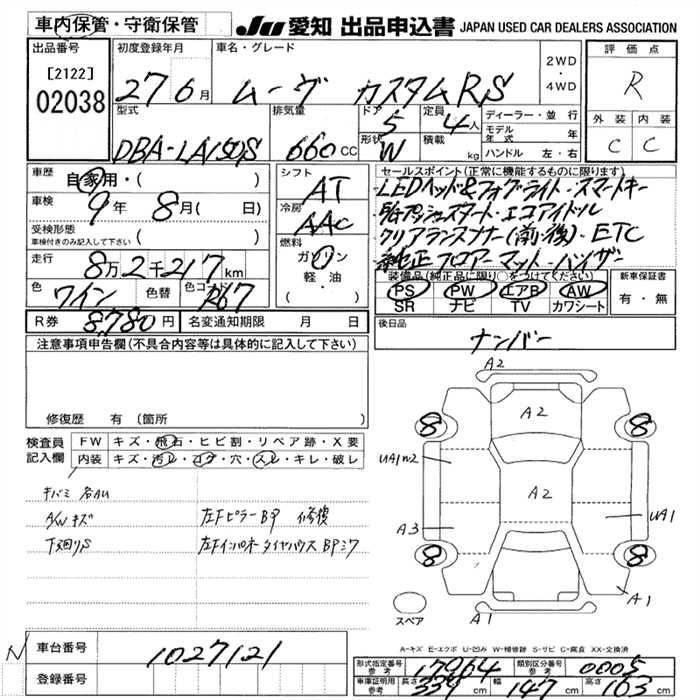 車内保管・守衛保管
JU 愛知 出品申込書 JAPAN USED CAR DEALERS ASSOCIATION
出品番号
[2122]
02038
初度登録年月
27 6月
車名・グレード
ムーヴ カスタムRS
2WD
・
4WD
評価点
R
外装 内装
C C
型式
DBA-LA150S
排気量
660 CC
ドア
5
定員
4人
形状
W
積載
kg
ディーラー・並行
モデル年式 年
ハンドル 左・右
車歴 自家用・( )
車検 9年 8月( 日)
受検形態
車検付きのみ記入して下さい ( )
走行 8万2千217km
色 ワイン 色替 色コード R67
R券 8,780円 名変通知期限 月 日
シフト
AT
冷房
AAC
燃料
ガソリン
軽・油
( )
セールスポイント(正常に機能するものに限ります)
・LEDヘッド&フォグライト・スマートキー
・プッシュスタート・エコアイドル
クリアランスソナー(前・後)・ETC
・純正フロアーマット・バイザー
装備品(純正品に限り○をつけてください)
PS PW エアB AW
SR ナビ TV カワシート
新車保証書
有・無
後日品
ナンバー
注意事項申告欄(不具合内容等は具体的に記入して下さい)
修復歴 有 〔箇所 〕
検査員記入欄
FW キズ・飛石・ヒビ割・リペア跡・X要
内装 キズ・汚レ・コゲ・穴・スレ・キレ・破レ
キバミ 各AU
A/Wキズ 左Fピラー BP 修復
下廻りS 左Fインパネ タイヤハウス BPミワ
A2
A2
8 8
UA1 W2
A2
A3
UA1
8 8
A1
A1
スペア
A-キズ E-エクボ U-凹み W-補修跡 S-サビ C-腐食 XX-交換済
N
車台番号 1027121
登録番号
形式指定番号 参考 17964 類別区分番号 参考 0005
車庫証明用 参考 長さ 339cm 幅 147cm 高さ 163cm